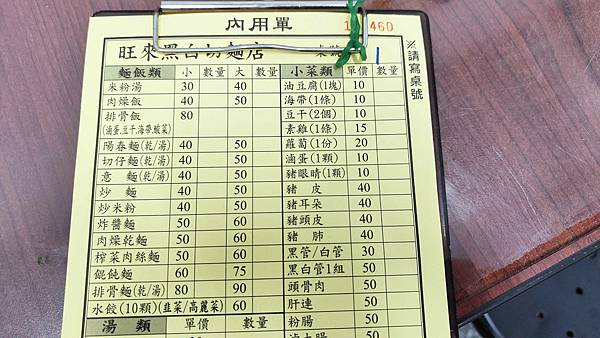 內用單
460
旺來黑白切麵店 桌號 1
※請寫桌號
麵飯類 小 數量 大 數量
米粉湯 30 40
肉燥飯 40 50
排骨飯 80
(滷蛋,豆干,海帶,酸菜)
陽春麵(乾/湯) 40 50
切仔麵(乾/湯) 40 50
意 麵(乾/湯) 40 50
炒 麵 40 50
炒米粉 40 50
炸醬麵 50 60
肉燥乾麵 50 60
榨菜肉絲麵 50 60
餛飩麵 60 75
排骨麵(乾/湯) 80 90
水餃(10顆)(韭菜/高麗菜) 60
湯類 單價 數量
小菜類 單價 數量
油豆腐(1塊) 10
海帶(1條) 10
豆干(2個) 10
素雞(1條) 15
蘿蔔(1份) 20
滷蛋(1顆) 10
豬眼睛(1顆) 10
豬 皮 40
豬耳朵 40
豬頭皮 40
豬 肺 40
黑管/白管 30
黑白管1組 50
頭骨肉 50
肝連 50
粉腸 50